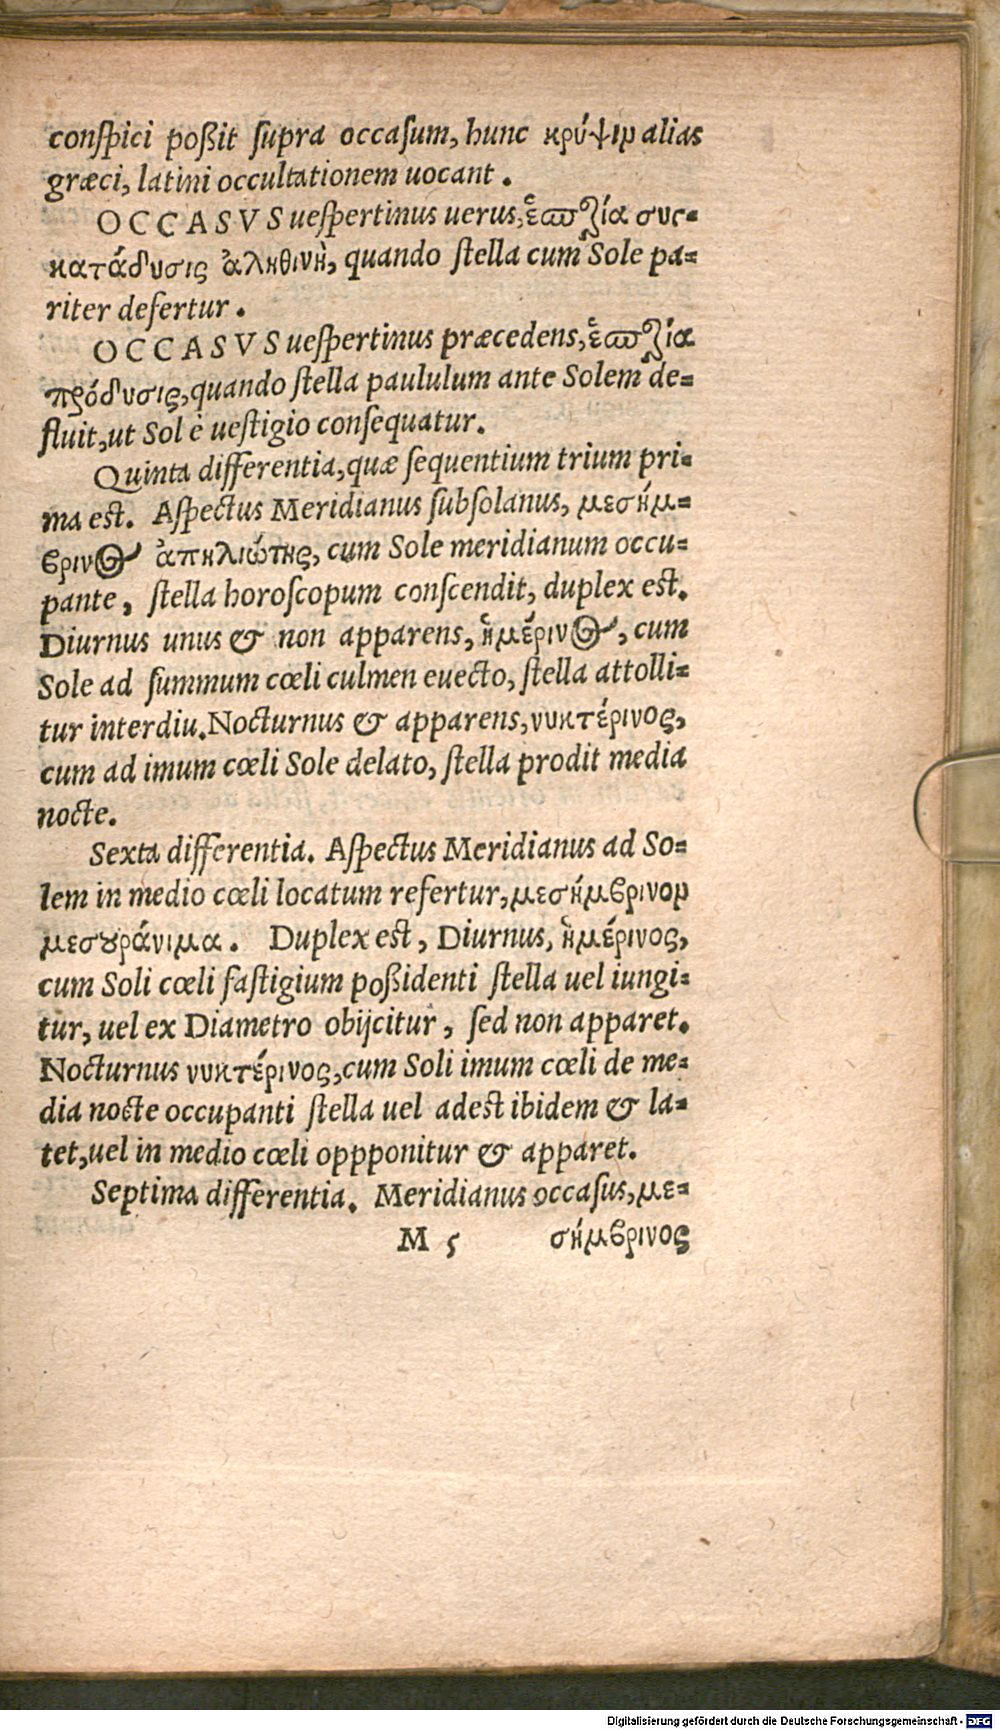 conſpici poßit ſupra occaſum, hunc κρύψιν alias
græci, latini occultationem uocant.
OCCASVS ueſpertinus uerus, ἑσπερία συς-
κατάδυσις ἀληθινὴ, quando ſtella cum Sole pa-
riter defertur.
OCCASVS ueſpertinus præcedens, ἑσπερία
πρόδυσις, quando ſtella paululum ante Solem de-
fluit, ut Sol è ueſtigio conſequatur.
Quinta differentia, quæ ſequentium trium pri-
ma est. Aſpectus Meridianus ſubſolanus, μεσήμ-
βρινος ἀπηλιώτης, cum Sole meridianum occu-
pante, ſtella horoſcopum conſcendit, duplex est.
Diurnus unus & non apparens, ἡμέρινος, cum
Sole ad ſummum cœli culmen euecto, ſtella attolli-
tur interdiu. Nocturnus & apparens, νυκτέρινος,
cum ad imum cœli Sole delato, ſtella prodit media
nocte.
Sexta differentia. Aſpectus Meridianus ad So-
lem in medio cœli locatum refertur, μεσήμβρινον
μεσουράνιμα. Duplex est, Diurnus, ἡμέρινος,
cum Soli cœli faſtigium poßidenti ſtella uel iungi-
tur, uel ex Diametro obijcitur, ſed non apparet.
Nocturnus νυκτέρινος, cum Soli imum cœli de me-
dia nocte occupanti ſtella uel adest ibidem & la-
tet, uel in medio cœli oppponitur & apparet.
Septima differentia. Meridianus occaſus, με-
M 5 σήμβρινος
Digitalisierung gefördert durch die Deutsche Forschungsgemeinschaft - DFG